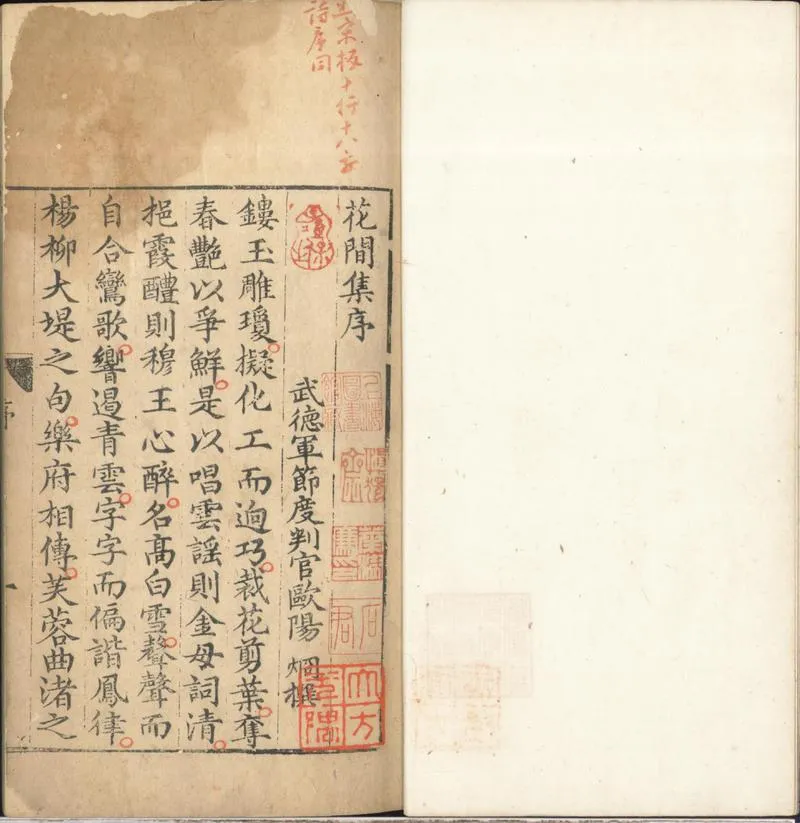 宋板十行十八字
詩序同
花間集序
武德軍節度判官歐陽 烱撰
鏤玉雕瓊。擬化工而逈巧。裁花剪葉。奪
春艷以爭鮮。是以唱雲謠則金母詞清。
挹霞醴則穆王心醉。名高白雪。聲聲而
自合鸞歌。響遏青雲。字字而偏諧鳳律。
楊柳大堤之句。樂府相傳。芙蓉曲渚之
序